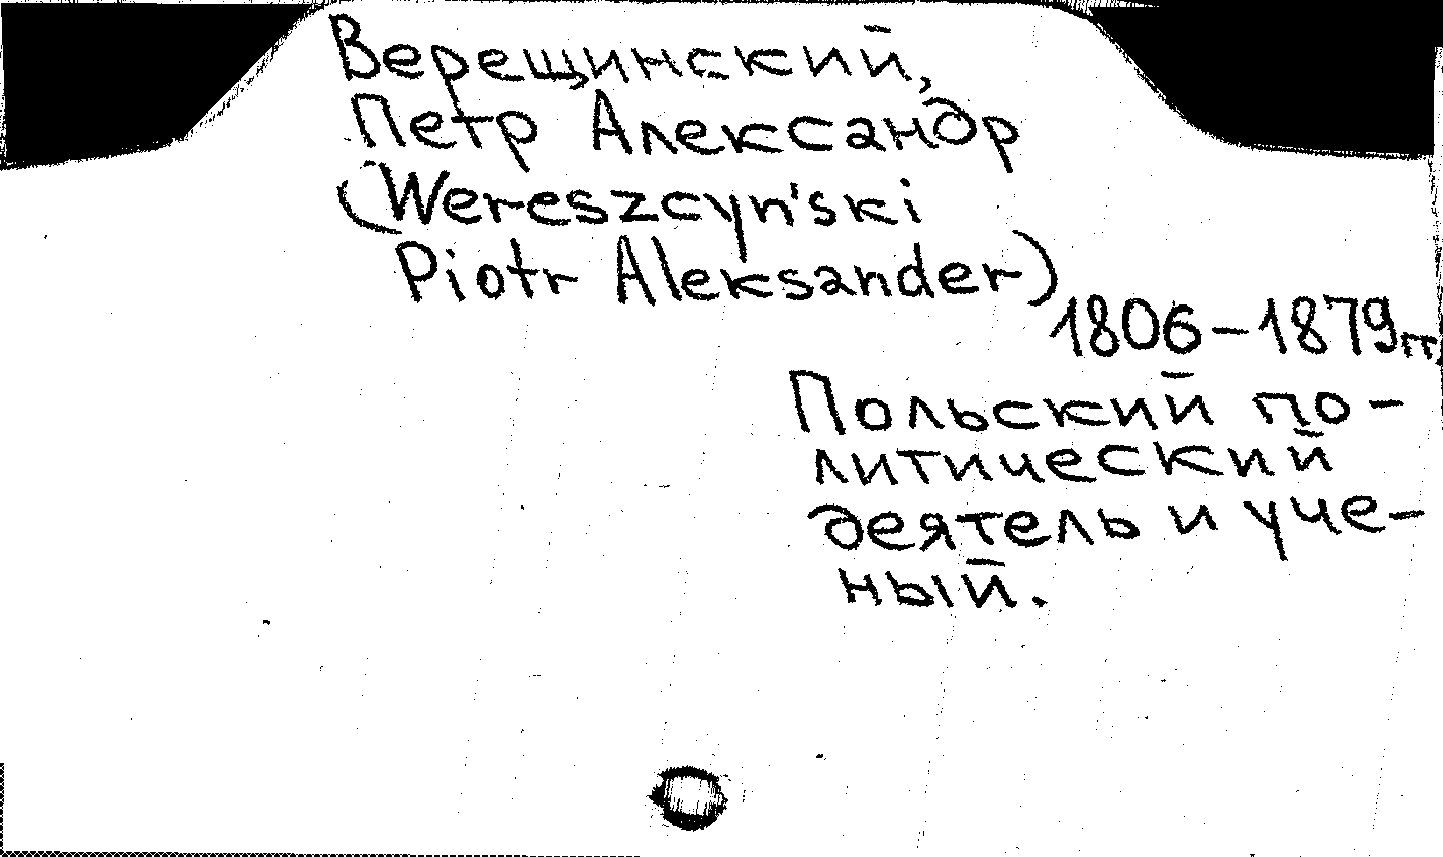 Верещинский,
Петр Александр
(Wereszcyński
Piotr Aleksander)
1806-1879гг.
Польский по-
литический
деятель и уче-
ный.